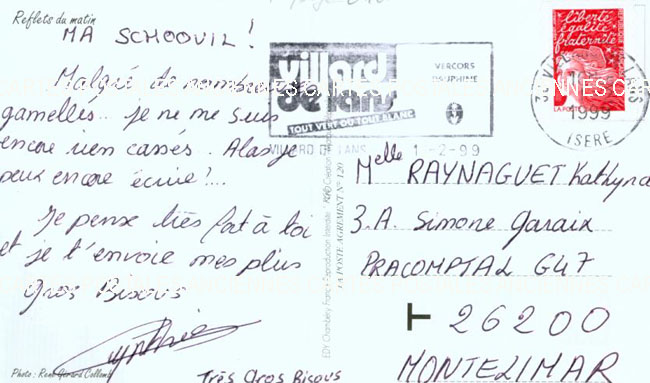 Reflets du matin
MA SCHOOVIL !
Malgré de nombreu
gamelles... je ne me suis
encore rien casses. Alors je
peux encore écrire !...
Je pense très fort à toi
et je t'envoie mes plus
Gros Bisous
Très Gros Bisous
Photo : René Gérard Collomb
EDY Chambéry France Reproduction Interdite
LA POSTE AGREMENT N° 120
villard
de lans
VERCORS
DAUPHINE
TOUT VERT OU TOUT BLANC
VILLARD DE LANS 1-2-99
liberté
égalité
fraternité
LA POSTE
1999
ISERE
Melle RAYNAGUET Kathyna
3.A. Simone Garaix
PRACOMPTAL G47
T 26200
MONTELIMAR